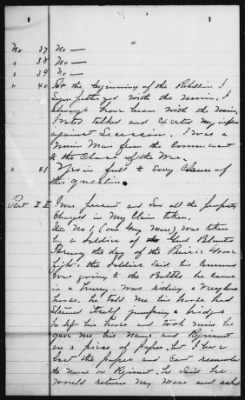 No 37 No —
" 38 No —
" 39 No —
" 40 At the beginning of the Rebellion I
sympathized with the Union, I
always from hence with the Union,
I voted talked and exerted my influence
against Secession. I was a
Union Man from the Commencement
to the Close of the War.
" 41 full to every Clause of
the question
Part II I was present and saw all the property
charged in My Claim taken.
The No 1, (one bay mare), was taken
by a soldier of Genl
the day of the Prairie Grove
fight. the soldier said his command
was going to the Battle he came
in a hurry - was riding a
horse. he told me his horse had
itself jumping a bridge
he left his horse and took mine he
gave me his name and Regiment
on a piece of paper, but I have
lost the paper and can remember
no name or Regiment. he said he
would return my Mare and